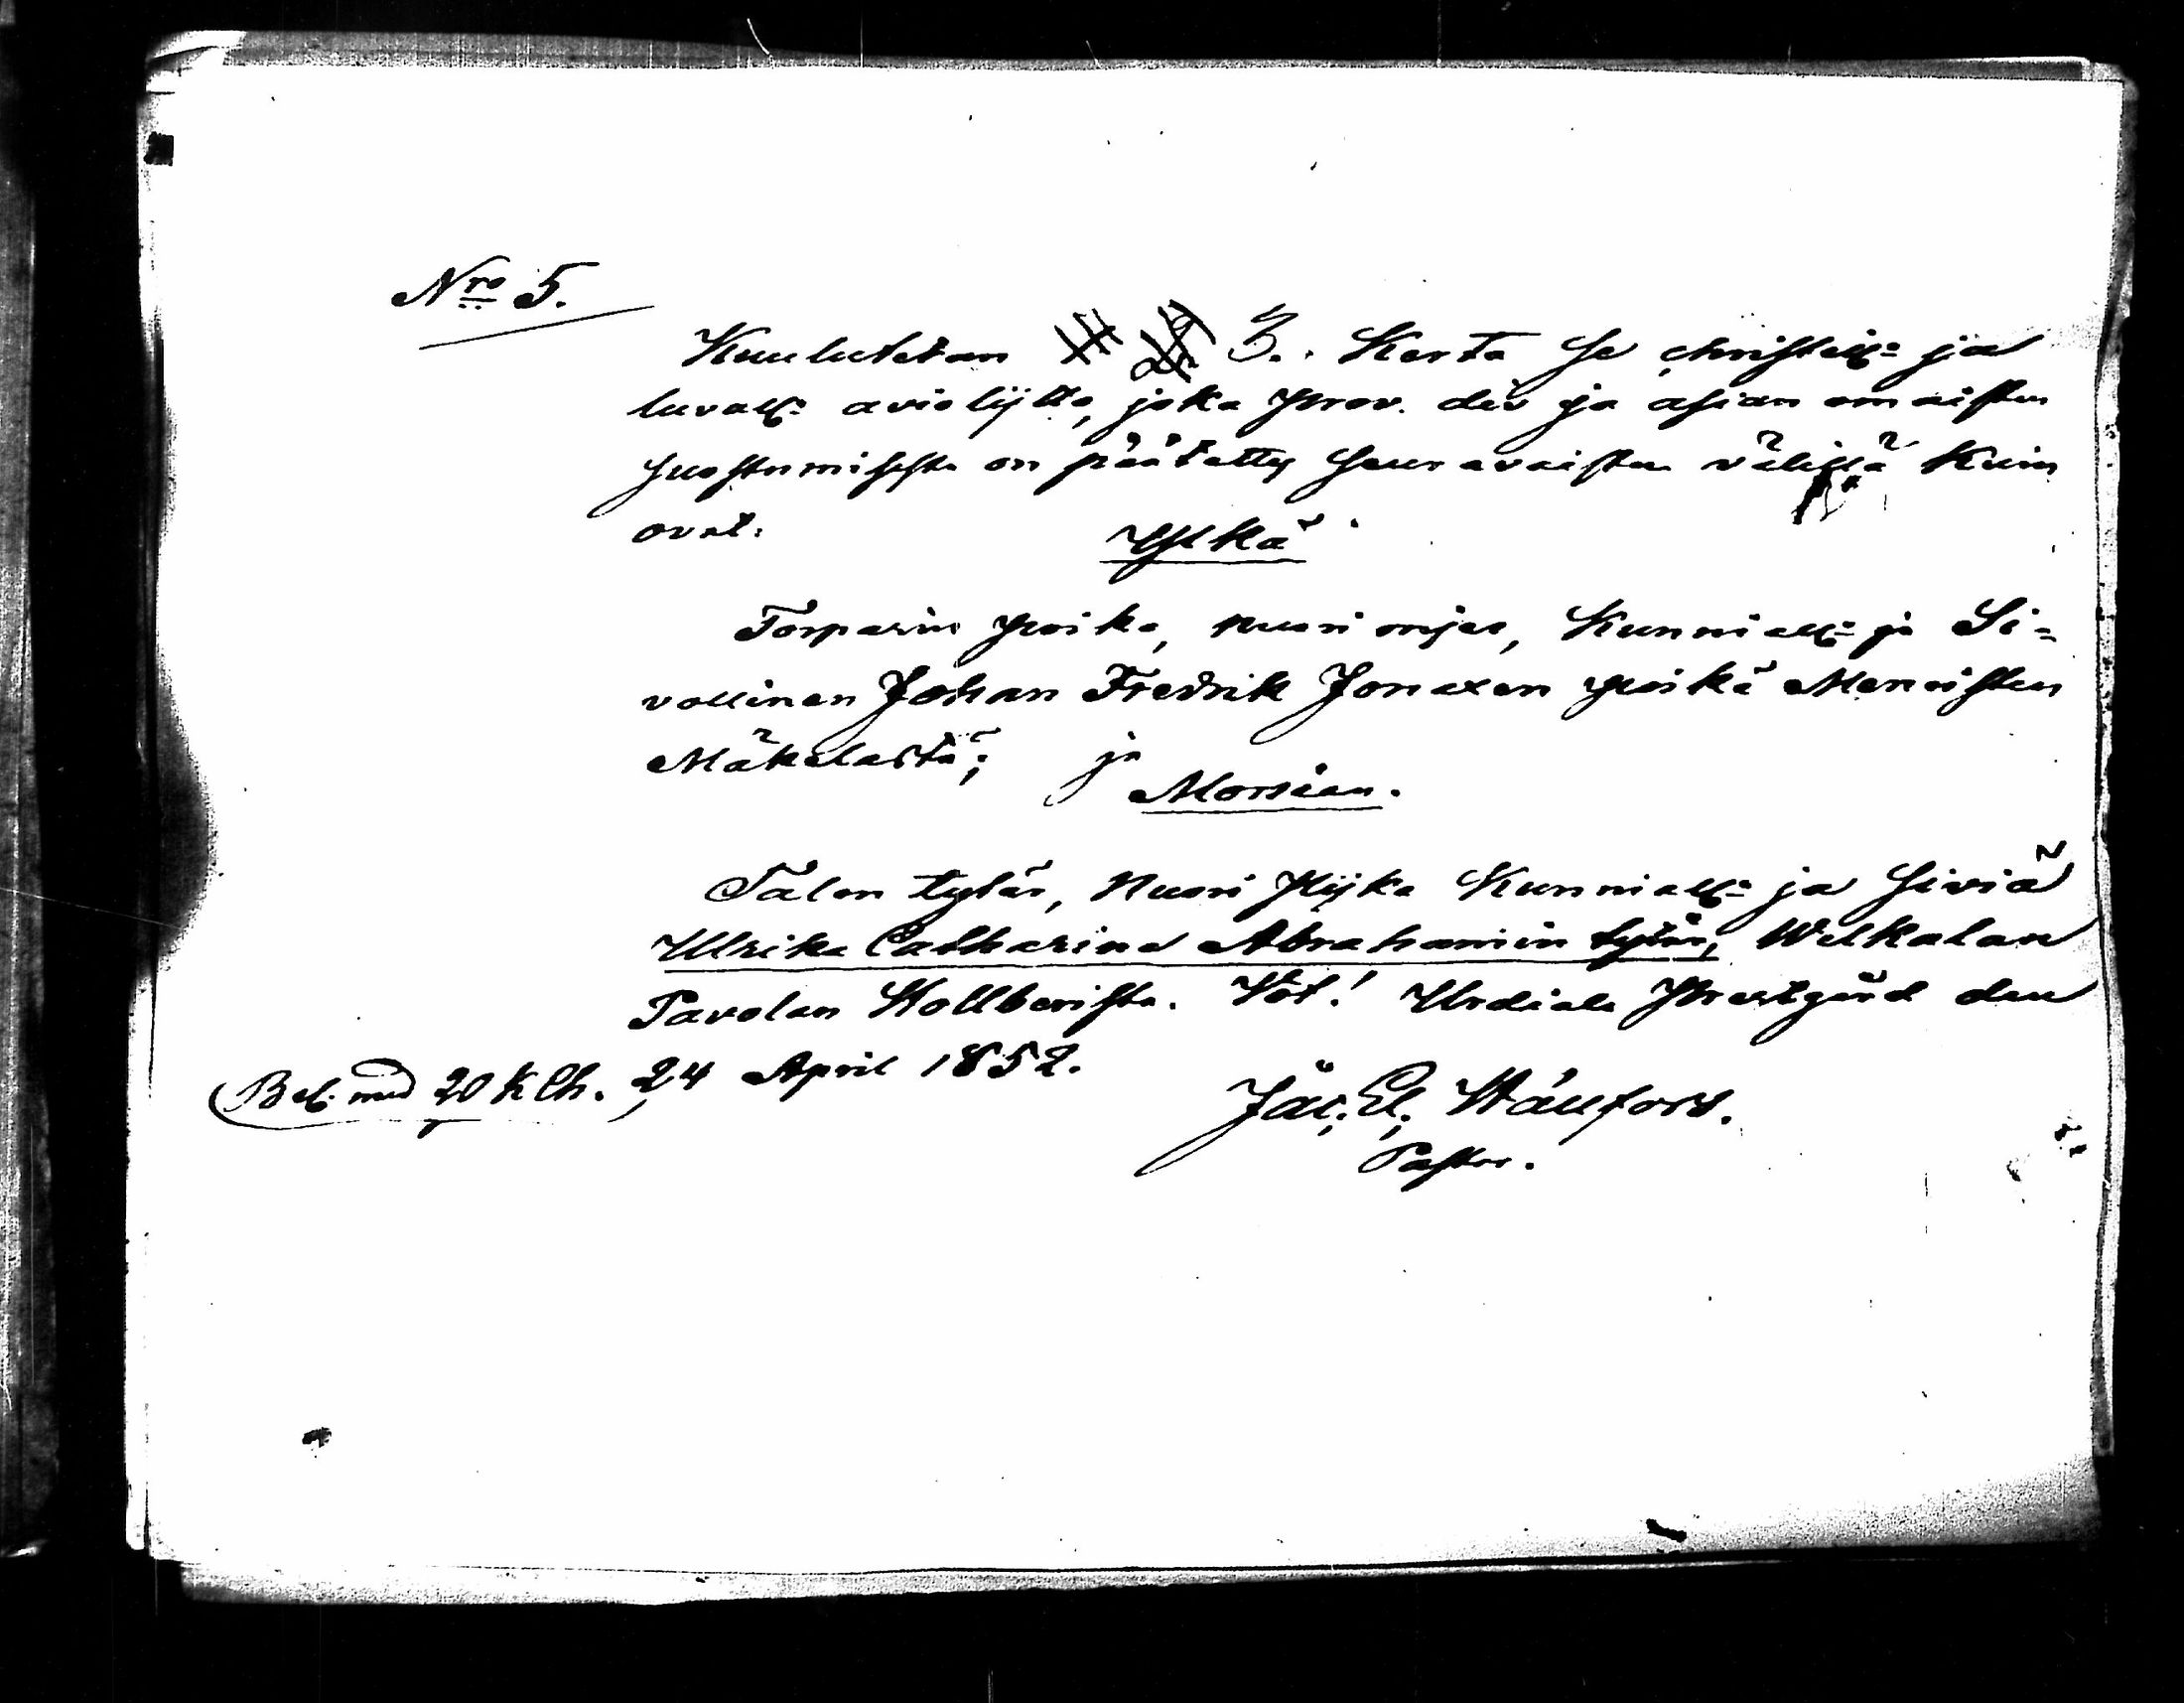 Nro 5.
Kuulutetan 3. Kerta Se christell: ja
luvall: aviolijtto, joka prov. dei ja asian omaisten
suostumisesta on päätetty seuravaisten välillä Kuin
ovat:
Ylkä
Torparin poika, nuori mies, Kunniall: ja Si-
vollinen Johan Fredrik Jonaxen poikä Menoisten
Mäkelastä; ja
Morsian.
Talon tytär, Nuori Pijka Kunniall: ja Siviä
Ulrika Catharina Abrahamin tytär, Welkalan
Pavolan Hollberista. Vot! Urdiala Prestgård den
24 April 1852.
Bel. med 20 k Ch.
Jac. El.
Pastor.